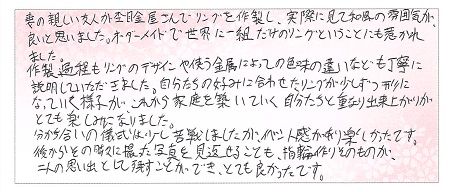 妻の親しい友人が杢目金屋さんでリングを作製し、実際に見て和風の雰囲気が、
良いと思いました。オーダーメイドで世界に一組だけのリングということにも惹かれ
ました。
作製過程もリングのデザインや使う金属によっての色味の違いなども丁寧に
説明していただきました。自分たちの好みに合わせたリングが少しずつ形に
なっていく様子が、これから家庭を築いていく自分たちと重なり出来上がりが
とても楽しみになりました。
分かち合いの儀式は少し苦戦しましたが、イベント感があり楽しかったです。
後からその時々に撮った写真を見返せることも、指輪作りそのものが、
二人の思い出として残すことができ、とても良かったです。